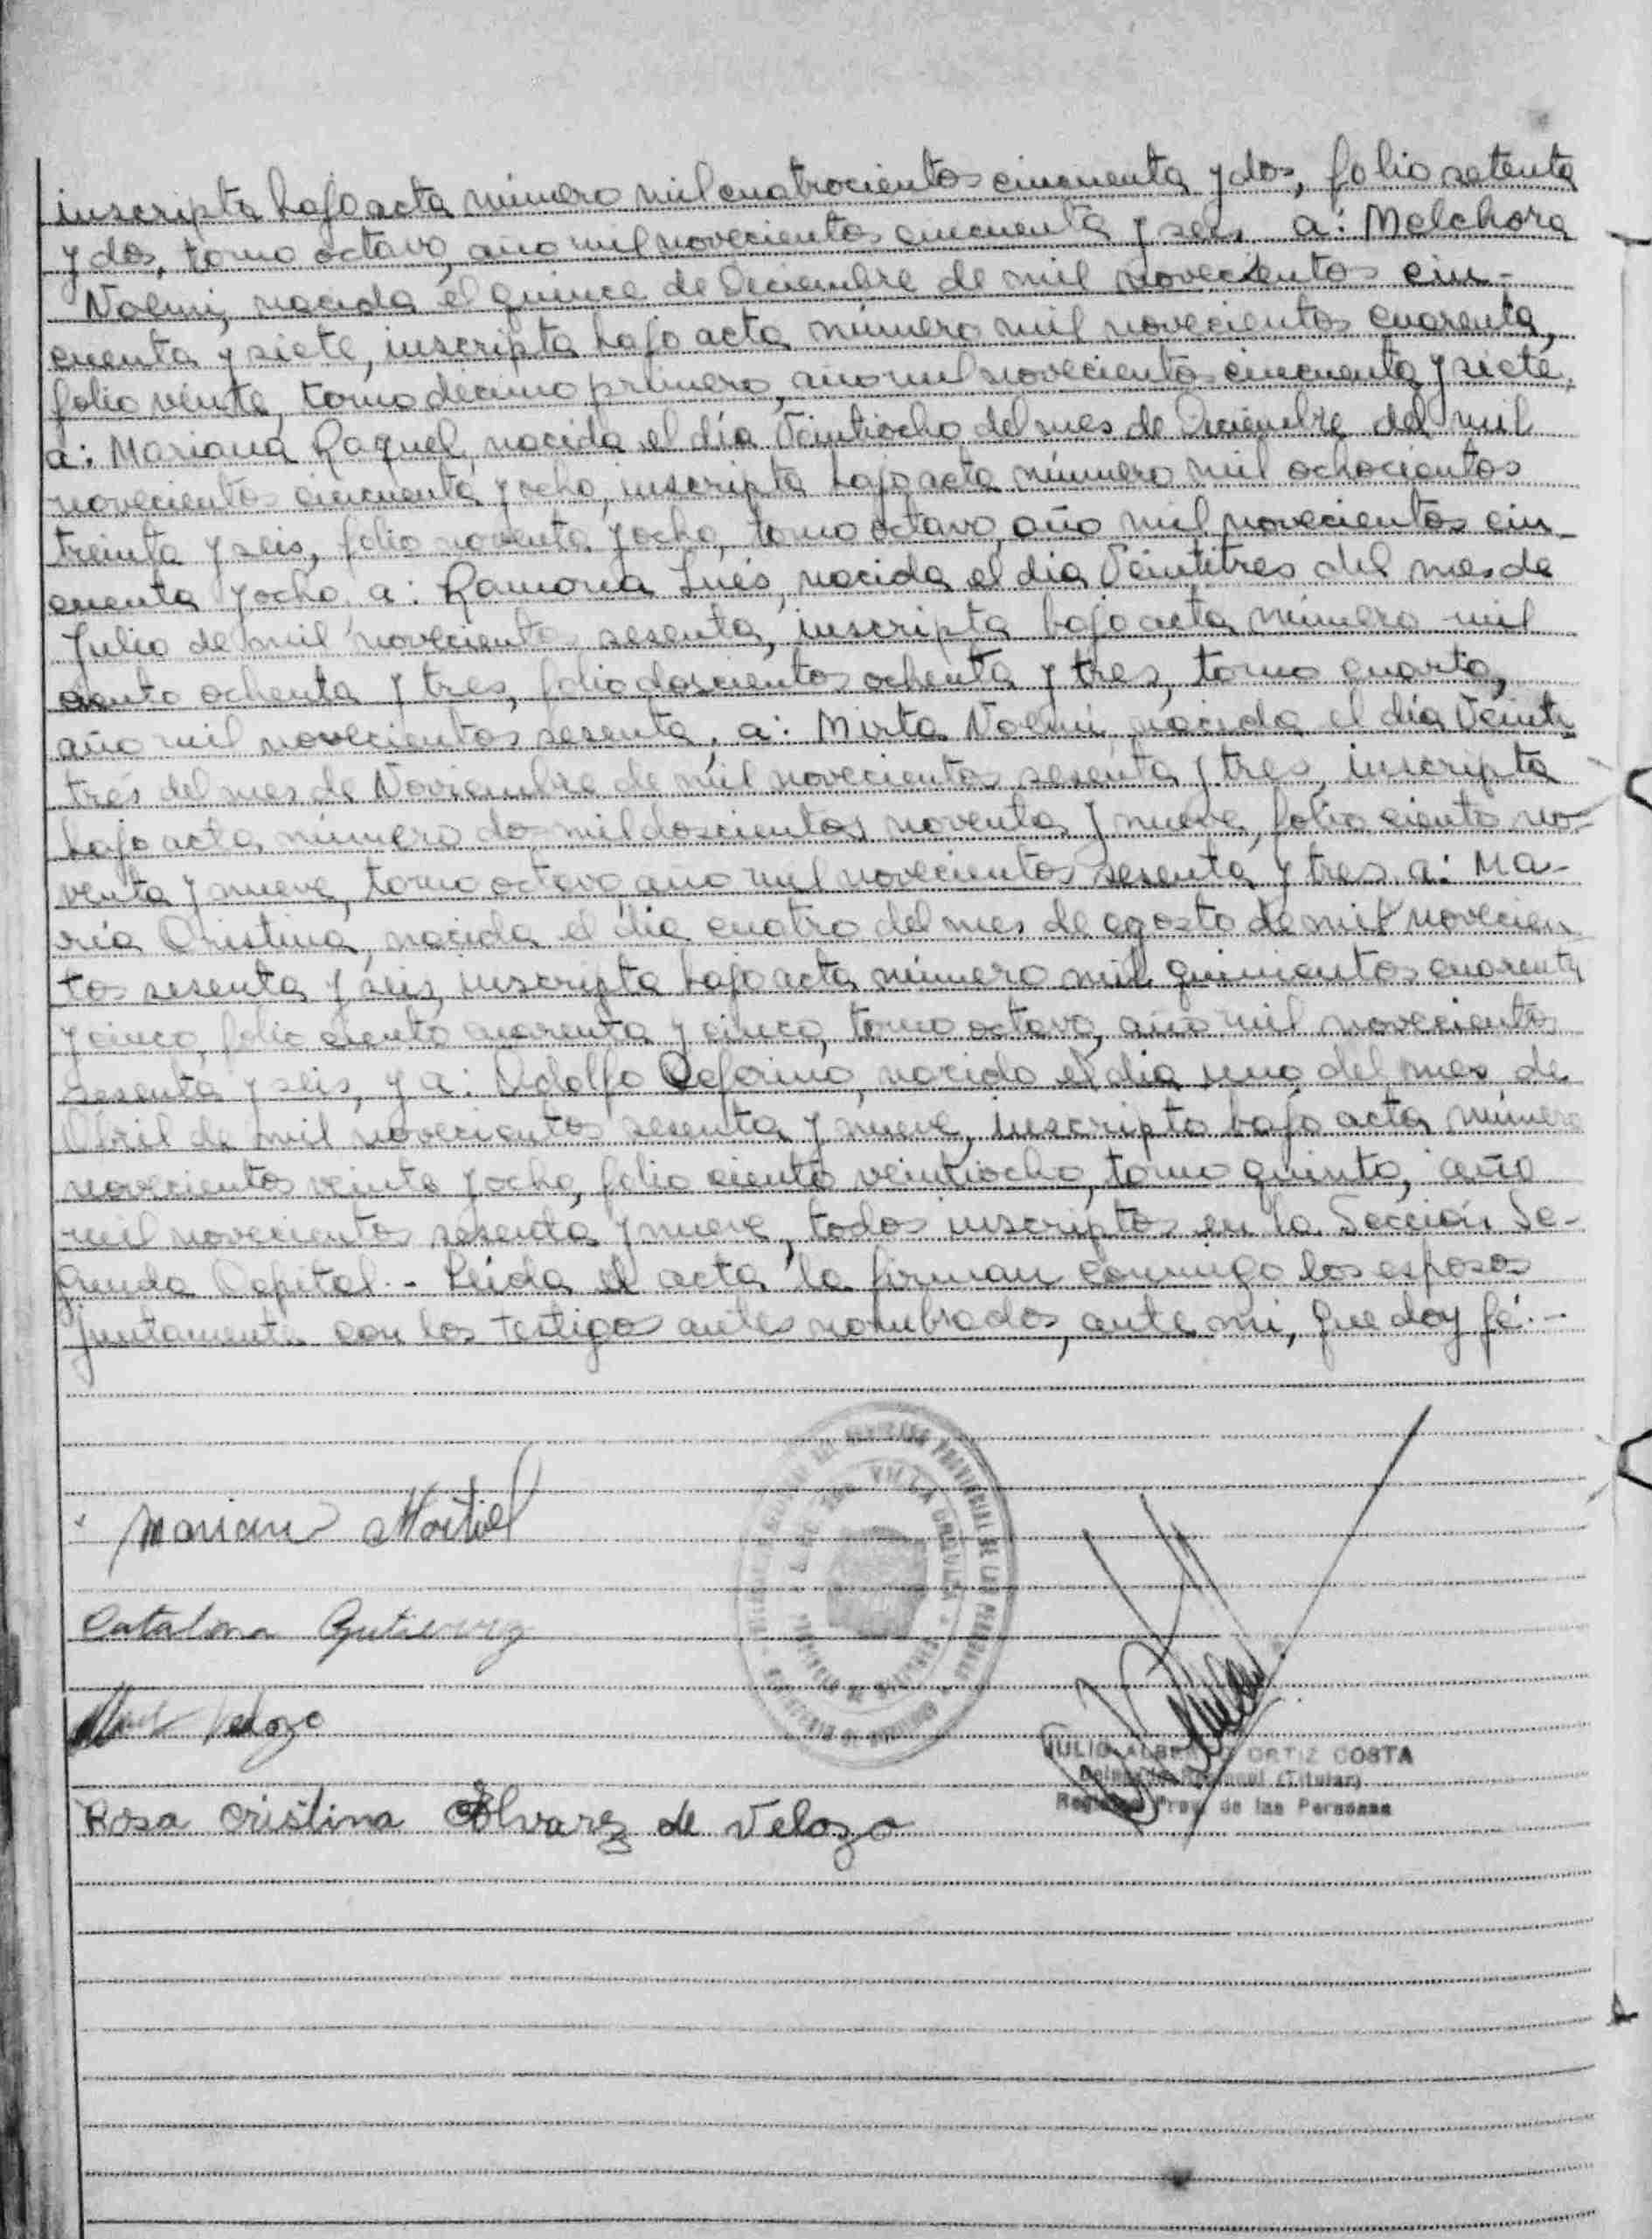 inscripta bajo acta número mil cuatrocientos cincuenta y dos, folio setenta
y dos, tomo octavo, año mil novecientos cincuenta y seis, a: Melchora
Noemi, nacida el quince de Deciembre de mil novecientos cin-
cuenta y siete, inscripta bajo acta número mil novecientos cuarenta,
folio veinte, tomo décimo primero, año mil novecientos cincuenta y siete,
a: Mariana Raquel, nacida el día Veintiocho del mes de Deciembre del mil
novecientos cincuenta y ocho, inscripta bajo acta número mil ochocientos
treinta y seis, folio noventa y ocho, tomo octavo, año mil novecientos cin-
cuenta y ocho, a: Ramona Inés, nacida el día Veintitres del mes de
Julio de mil novecientos sesenta, inscripta bajo acta número mil
ciento ochenta y tres, folio doscientos ochenta y tres, tomo cuarto,
año mil novecientos sesenta, a: Mirta Noemi, nacida el día Veinti-
trés del mes de Noviembre de mil novecientos sesenta y tres, inscripta
bajo acta número dos mil doscientos noventa y nueve, folio ciento no-
venta y nueve, tomo octavo año mil novecientos sesenta y tres a: Ma-
ría Cristina, nacida el día cuatro del mes de agosto de mil novecien
tos sesenta y seis, inscripta bajo acta número mil quinientos cuarenta
y cinco, folio ciento cuarenta y cinco, tomo octavo, año mil novecientos
sesenta y seis, y a: Adolfo Ceferino, nacido el día uno del mes de
Abril de mil novecientos sesenta y nueve, inscripto bajo acta número
novecientos veinte y ocho, folio ciento veintiocho, tomo quinto, año
mil novecientos sesenta y nueve, todos inscriptos en la Sección Se-
gunda Capital.- Leída el acta la firman conmigo los esposos
juntamente con los testigos antes nombrados, ante mi, que doy fé.-
Mariano Montiel
Catalina Gutierrez
Velozo
JULIO ALBERTO ORTIZ COSTA
(Titular)
Registro Prov. de las Personas
Rosa Cristina Alvarez de Velozo